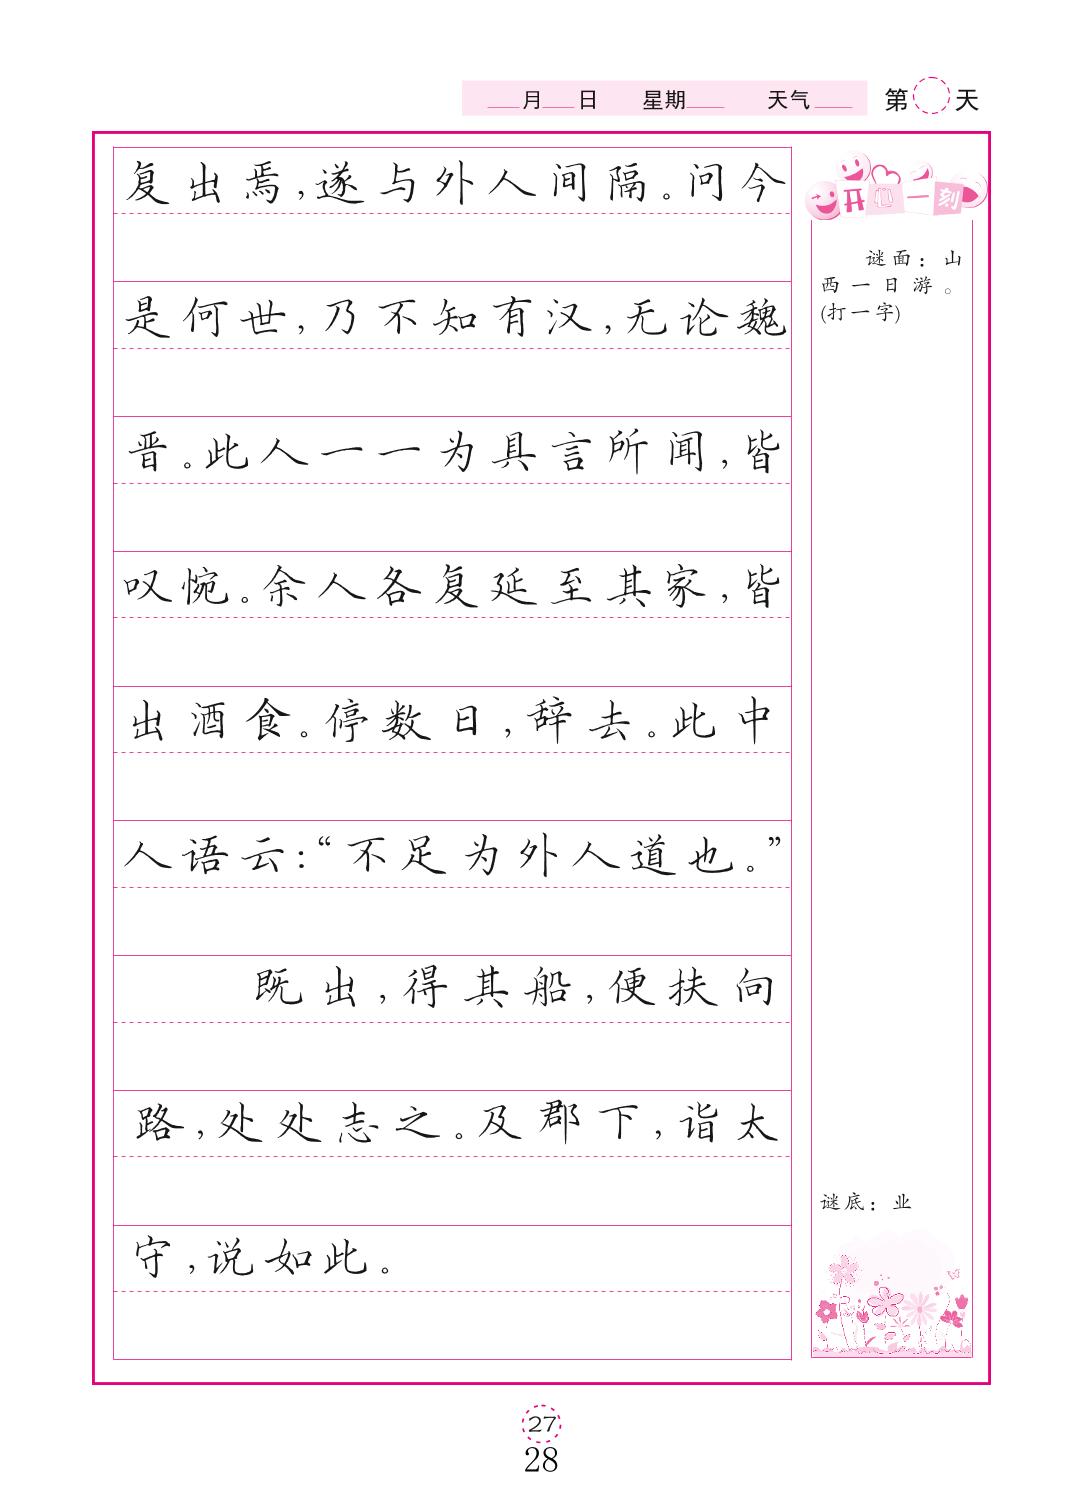 ___月___日 星期___ 天气___ 第 天
复出焉,遂与外人间隔。问今
是何世,乃不知有汉,无论魏
晋。此人一一为具言所闻,皆
叹惋。余人各复延至其家,皆
出酒食。停数日,辞去。此中
人语云:“不足为外人道也。”
既出,得其船,便扶向
路,处处志之。及郡下,诣太
守,说如此。
开心一刻
谜面:山
西一日游。
(打一字)
谜底:业
27
28